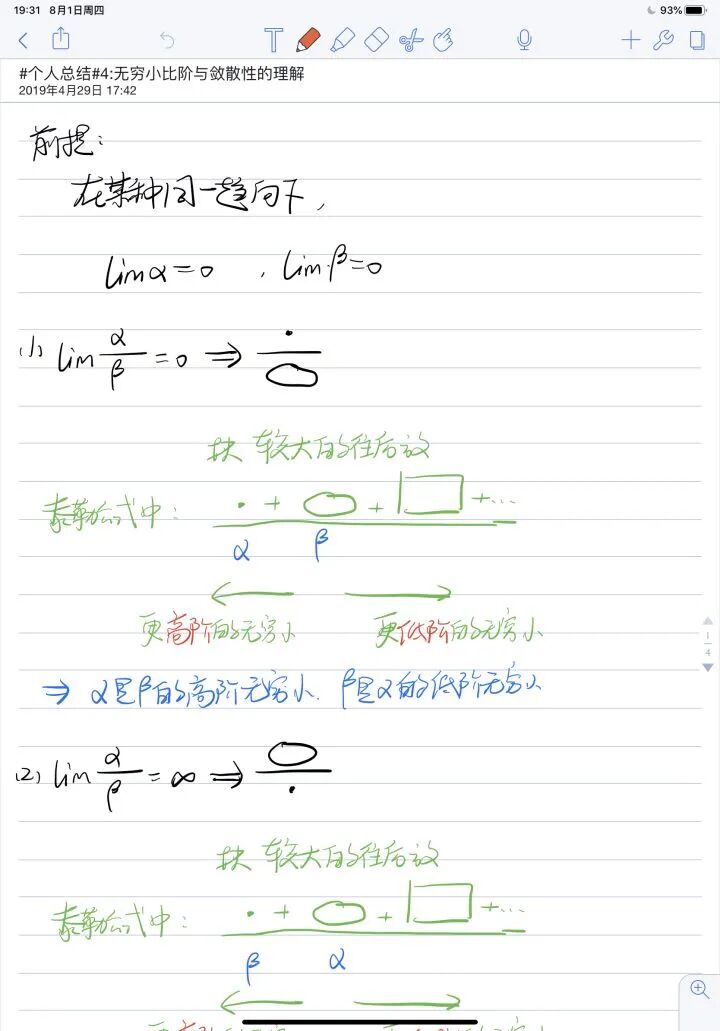 19:31 8月1日周四
93%
#个人总结#4:无穷小比阶与敛散性的理解
2019年4月29日 17:42
前提:
在某种同一趋向下,
lim α=0 , lim β=0
(1) lim α/β =0 ⇒ ·/○
块 较大的往后放
泰勒公式中: · + ○ + □ +...
α β
← →
更高阶的无穷小 更低阶的无穷小
⇒ α是β的高阶无穷小. β是α的低阶无穷小
1/4
(2) lim α/β =∞ ⇒ ○/·
块 较大的往后放
泰勒公式中: · + ○ + □ +...
β α
← →